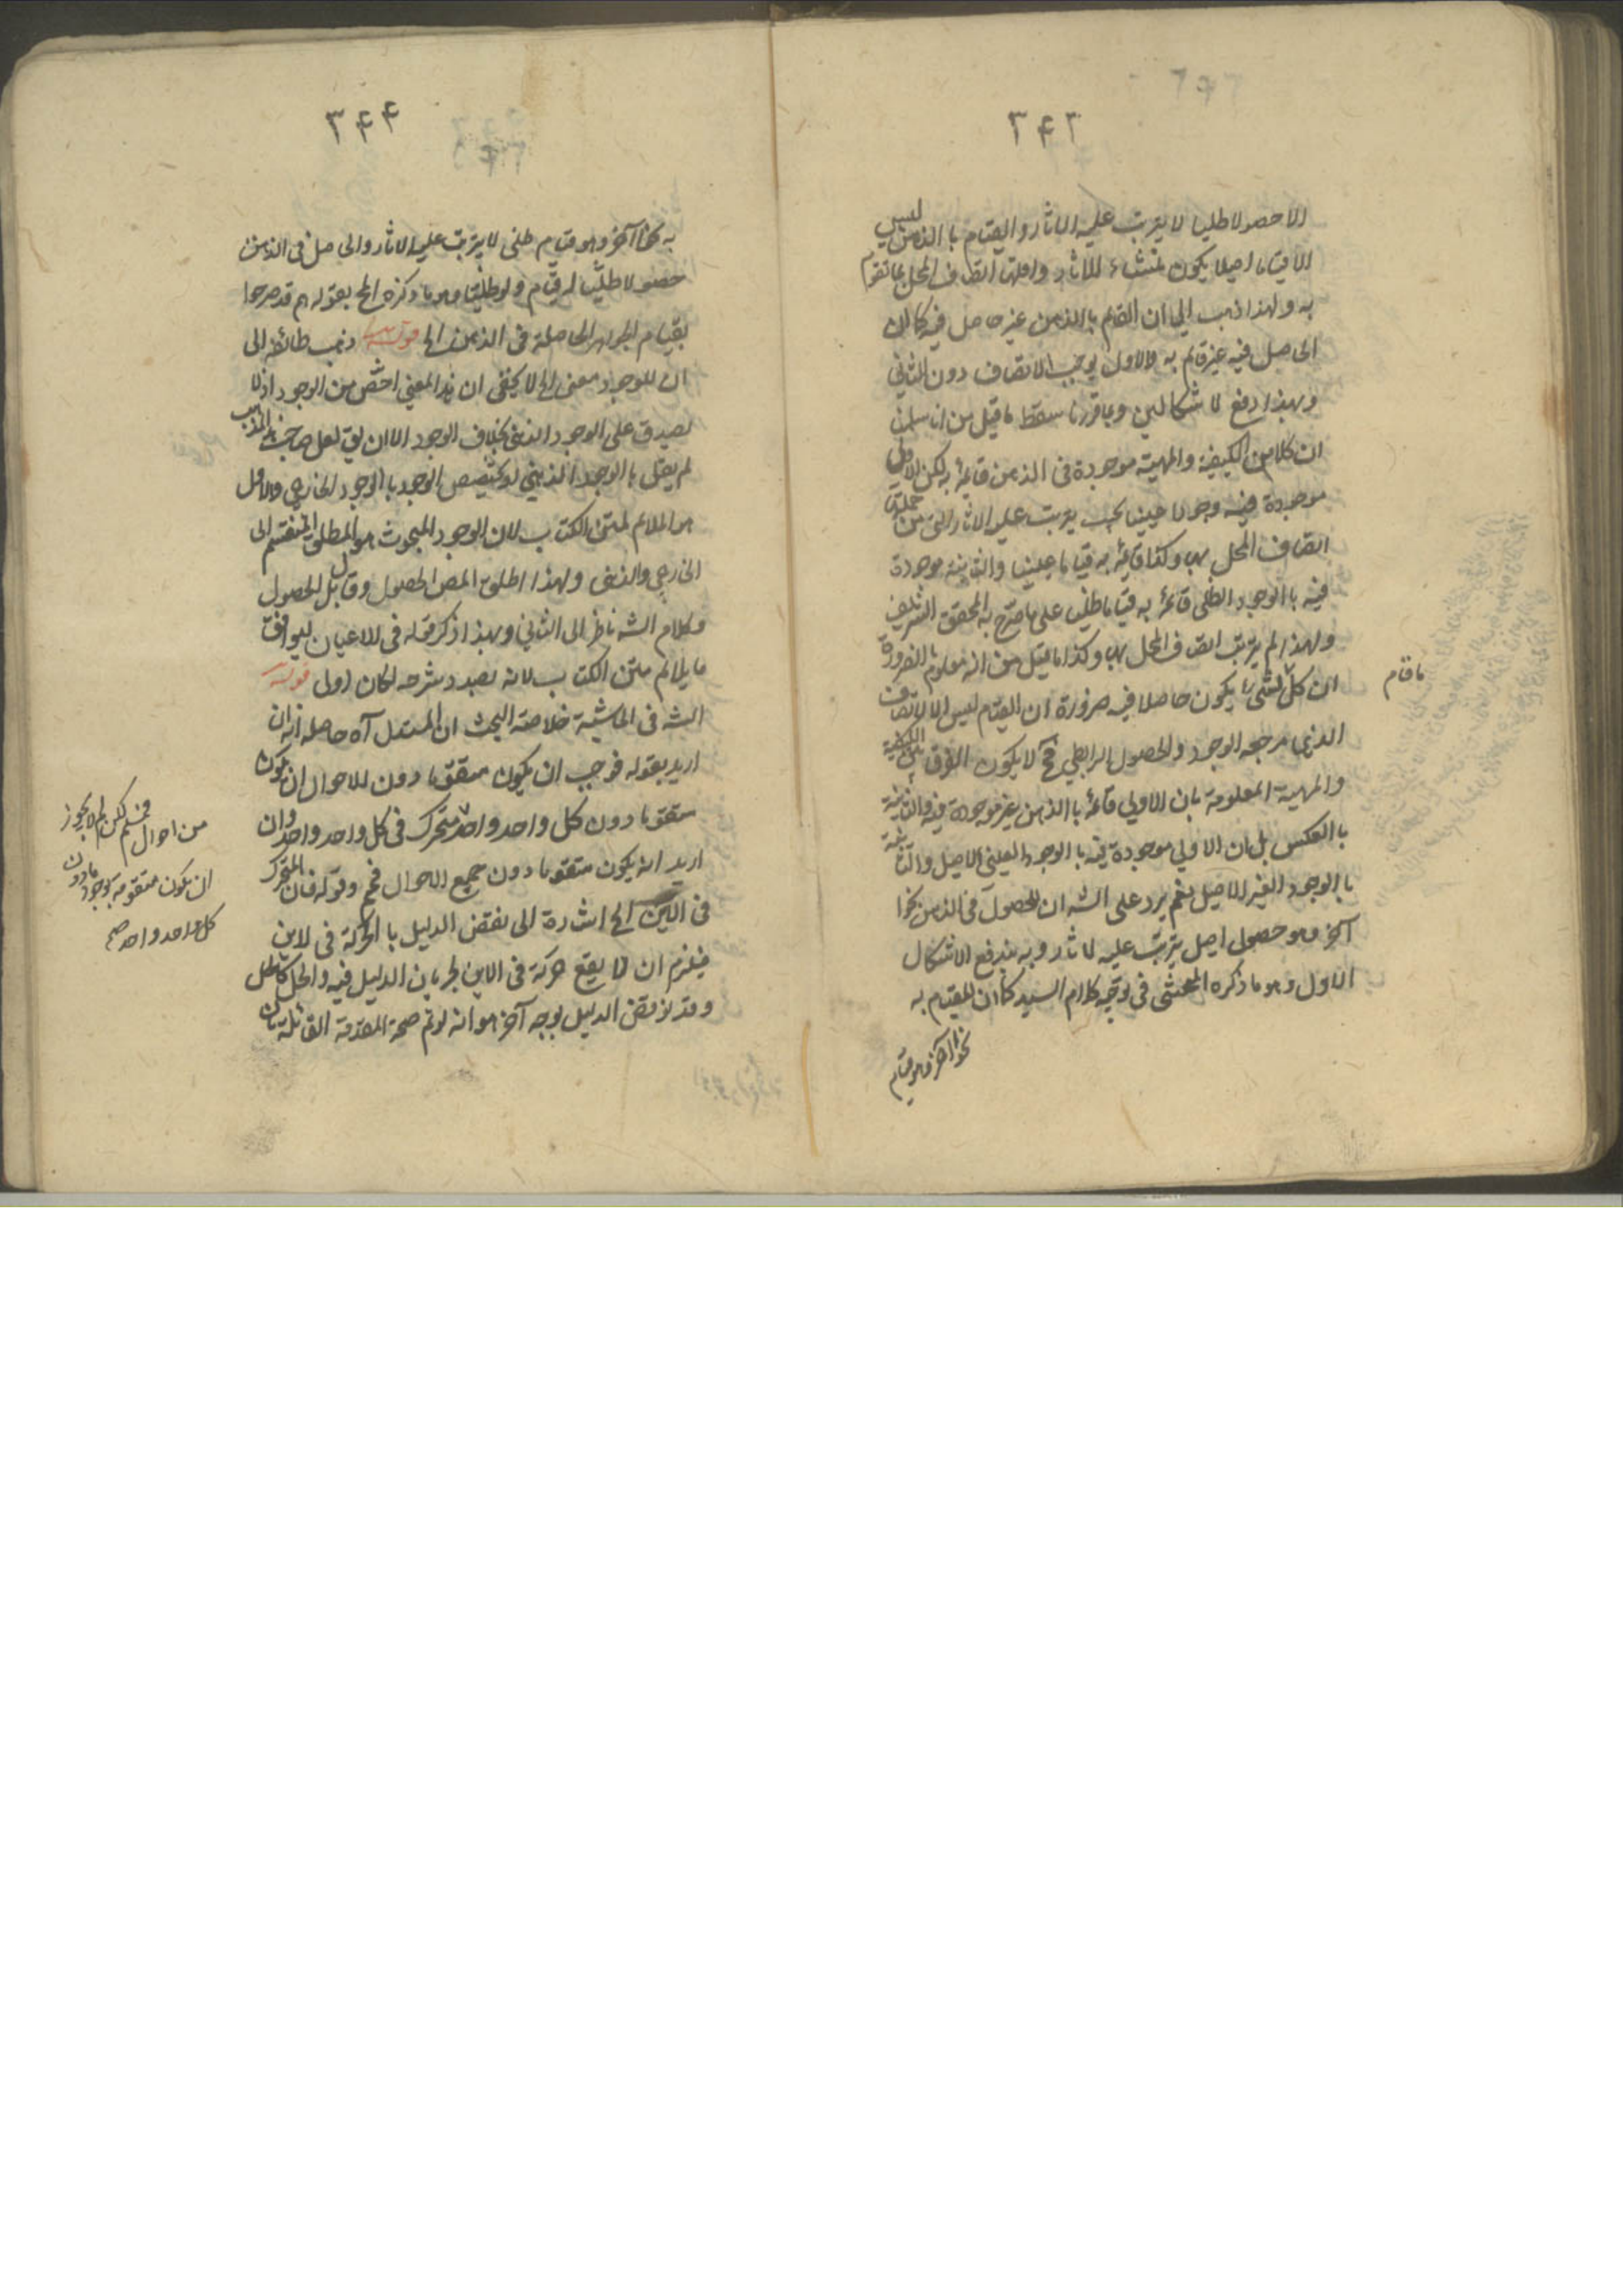 ٣٤٣
الا حصولا ظليا لا يترتب عليه الاثار والقيام بالذهن ليس
الا قياما اصيلا يكون منشاء للاثار واقلها اتصاف المحل بما تقوم
به ولهذا ذهب الى ان القائم بالذهن غير حاصل فيه كما ان
الحاصل فيه غير قائم به والاول يوجب الاتصاف دون الثاني
وبهذا دفع الاشكالين وبما قررنا سقط ما قيل من انا سلمنا
ان كلا من الكيفية والمهية موجودة في الذهن قائمة به لكن الاولى
موجودة فيه وجودا عينيا بحيث يترتب عليه الاثار التي من جملتها
اتصاف المحل بها وكذا قائمة به قياما عينيا والثانية موجودة
فيه بالوجود الظلي قائمة به قياما ظليا على ما صرح به المحقق الشريف
ولهذا لم يترتب اتصاف المحل بها وكذا ما قيل من انه معلوم بالضرورة
ان كل شئ يكون حاصلا فيه ضرورة ان القيام ليس الا الاتصاف
ما قام
الذي مرجعه الوجود والحصول الرابطي فح لا يكون الفرق بين الكيفية
والمهية المعلومة بان الاولى قائمة بالذهن غير موجودة فيه والثانية
بالعكس بل بان الاولى موجودة فيه بالوجود العيني الاصيل والثانية
بالوجود الغير الاصيل نعم يرد على الشه ان للحصول في الذهن نحوا
آخر وهو حصول اصيل يترتب عليه الاثار وبه يندفع الاشكال
الاول وهو ما ذكره المحشى في توجيه كلام السيد كما ان للقيام به
نحوا آخر وهو قيام
٣٤٤
به نحوا آخر وهو قيام ظلي لا يترتب عليه الاثار والحاصل في الذهن
حصولا ظليا له قيام ولو ظليا وهو ما ذكره الخ بقوله هم قد صرحوا
بقيام الجواهر الحاصلة في الذهن الخ قوله ذهب طائفة الى
ان للوجود معنى الخ لا يخفى ان هذا المعني اخص من الوجود اذ لا
يصدق على الوجود الذهني بخلاف الوجود الا ان يق لعل صاحب هذا المذهب
لم يقل بالوجود الذهني او يخصص الوجود بالوجود الخارجي والاول
هو الملائم لمتن الكتاب لان الوجود المبحوث هو المطلق المنقسم الى
الخارجي والذهني ولهذا اطلق المص الحصول وقابل الحصول
وكلام الشه ناظر الى الثاني وبهذا ذكر قوله في الاعيان ليوافق
ما يلائم متن الكتاب لانه بصدد شرحه لكان اولى قوله
الشه في الحاشية خلاصة البحث ان المستدل آه حاصله انه ان
اريد بقوله فوجب ان يكون متقوما دون الاحوال ان يكون
متقوما دون كل واحد واحد متحرك في كل واحد واحد وان
من احوال فمسلم لكن لم لا يجوز
ان يكون متقومة بوجود ما دون
كل واحد واحد صح
اريد انه يكون متقوما دون جميع الاحوال فمم وقوله فان المتحرك
في الاين الخ اشارة الى نقض الدليل بالحركة في الاين
فيلزم ان لا يقع حركة في الاين لجريان الدليل فيه والحل كالحل
وقد نوقض الدليل بوجه آخر هو انه لو تم صحة المقدمة القائلة بان